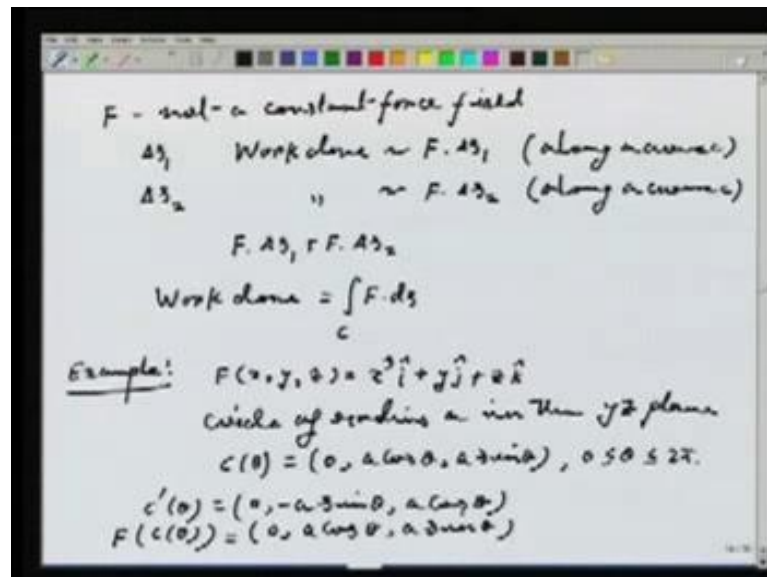 F - not a constant force field
Δs₁ Work done ~ F.Δs₁ (along a curve c)
Δs₂ " ~ F.Δs₂ (along a curve c)
F.Δs₁ + F.Δs₂
Work done = ∫ F.ds
c
Example: F(x,y,z) = x³î + yĵ + zk̂
circle of radius a in the yz plane
c(θ) = (0, a cosθ, a sinθ), 0 ≤ θ ≤ 2π.
c'(θ) = (0, -a sinθ, a cosθ)
F(c(θ)) = (0, a cosθ, a sinθ)